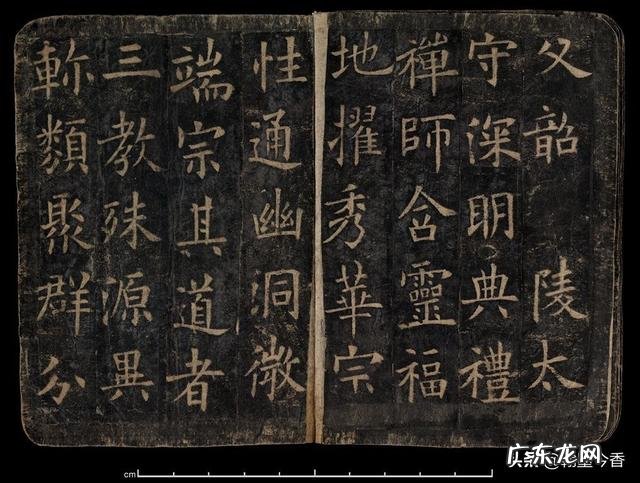 父韶陵太
守深明典禮
禪師含靈福
地擢秀華宗
性通幽洞微
端宗其道者
三教殊源異
軫類聚群分
cm
广东龙网
头条@翰墨今香